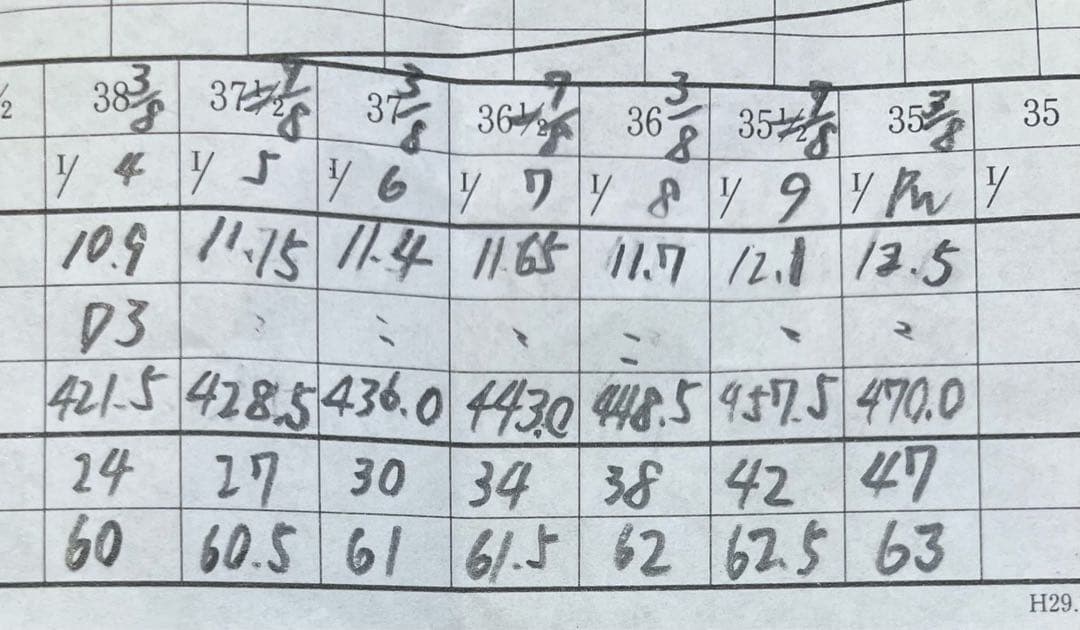 1/2 38 3/8 37 1/2 7/8 37 3/8 36 1/2 7/8 36 3/8 35 1/2 7/8 35 3/8 35
I/ 4 I/ 5 I/ 6 I/ 7 I/ 8 I/ 9 I/ I/
10.9 11.75 11.4 11.65 11.7 12.1 12.5
D3
421.5 428.5 436.0 443.0 448.5 457.5 470.0
24 27 30 34 38 42 47
60 60.5 61 61.5 62 62.5 63
H29.